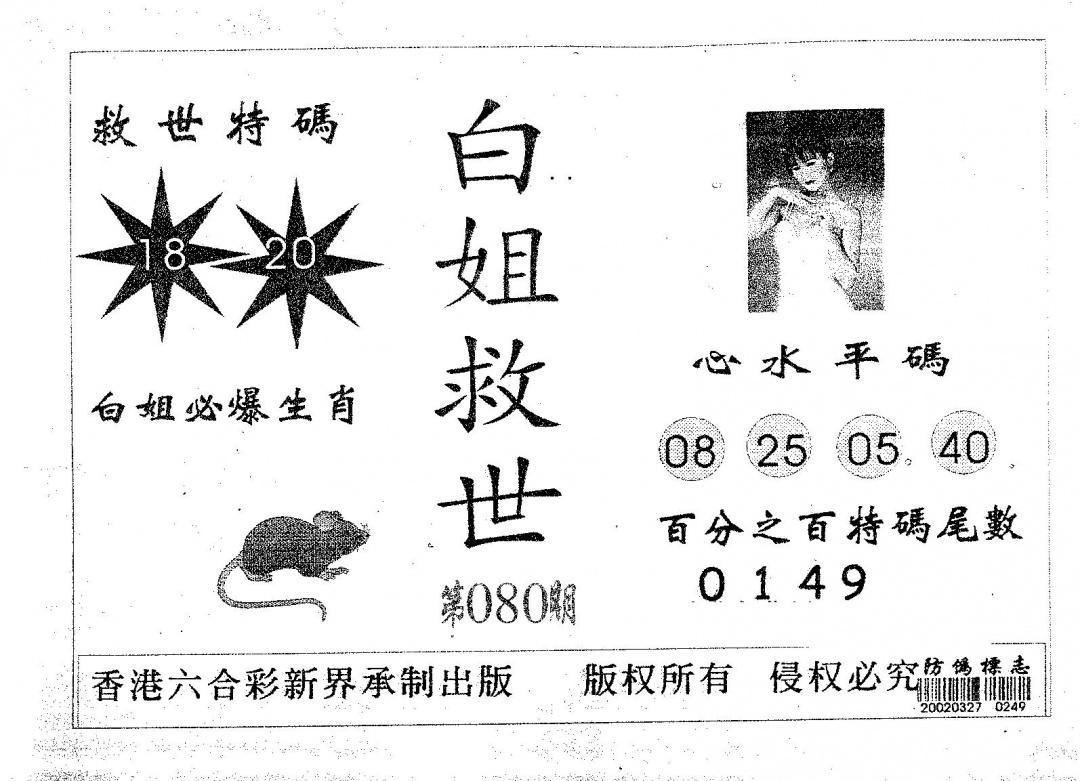 救世特碼
18 20
白姐必爆生肖
白姐救世
第080期
心水平碼
08 25 05 40
百分之百特碼尾數
0 1 4 9
香港六合彩新界承制出版 版权所有 侵权必究
防僞標志
20020327 0249